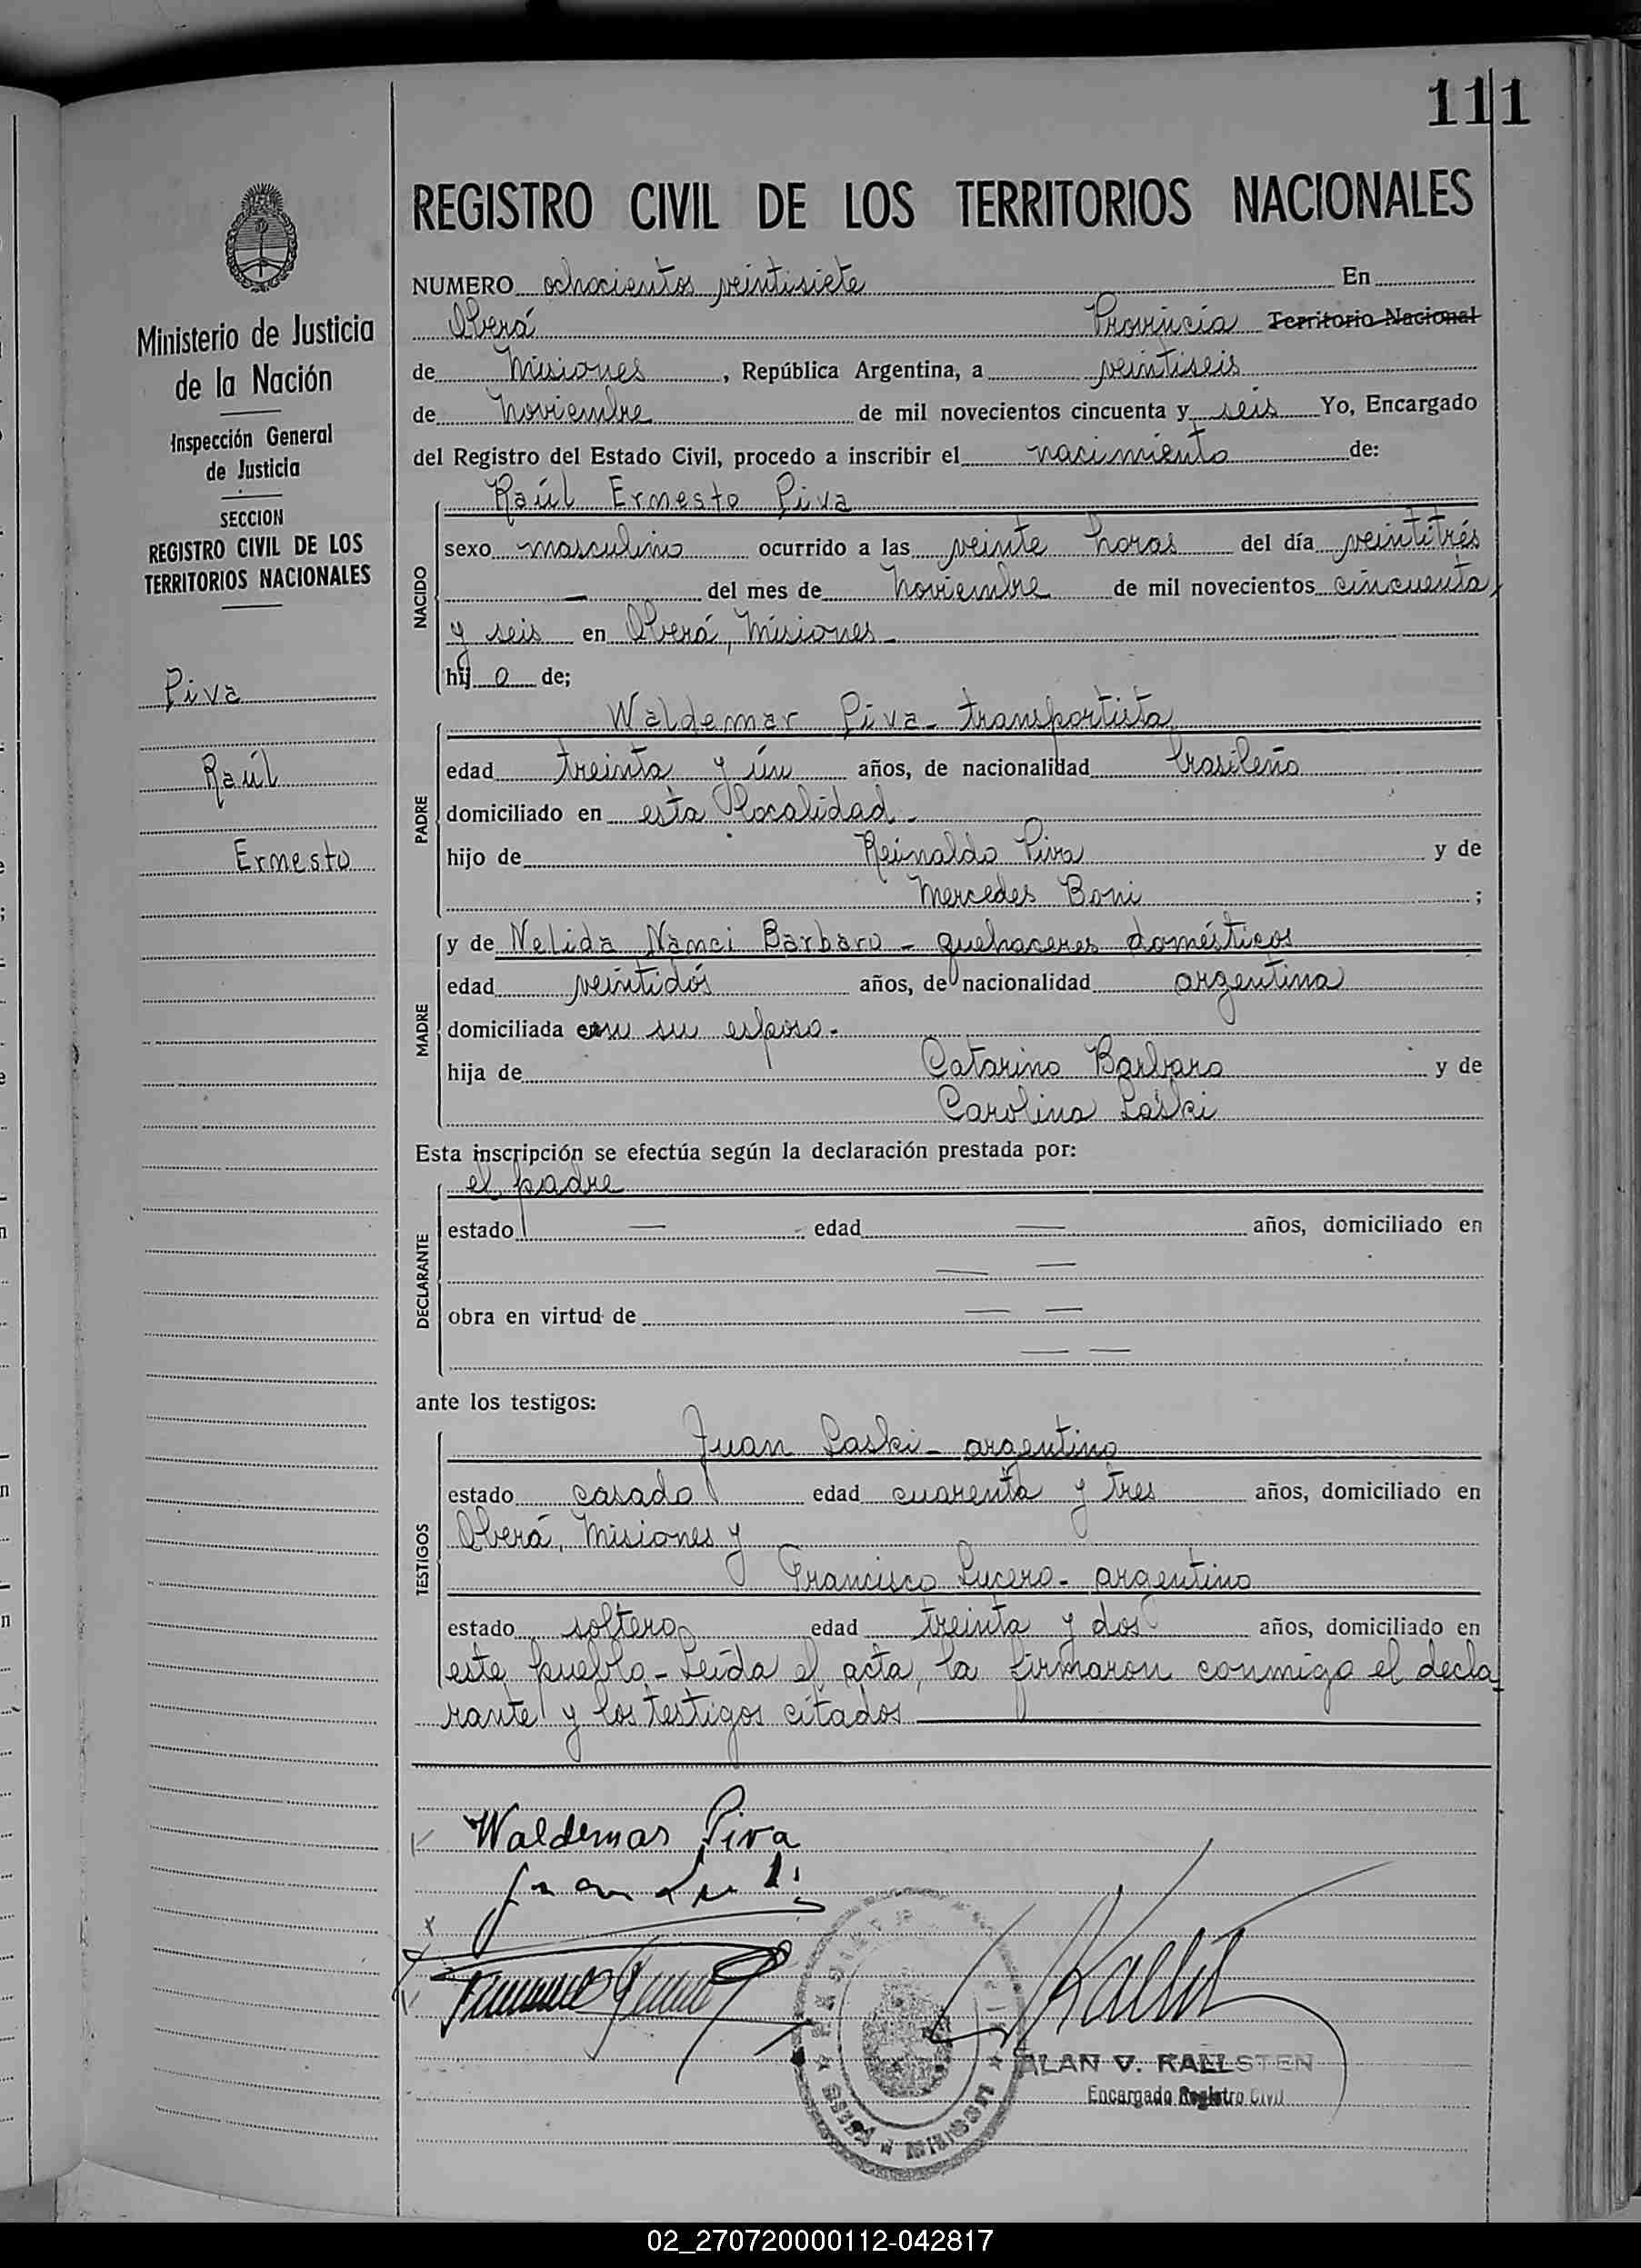 111
REGISTRO CIVIL DE LOS TERRITORIOS NACIONALES
Ministerio de Justicia
de la Nación
Inspección General
de Justicia
SECCION
REGISTRO CIVIL DE LOS
TERRITORIOS NACIONALES
Piva
Raúl
Ernesto
NUMERO ochocientos veintisiete En
Oberá Provincia Territorio Nacional
de Misiones, República Argentina, a veintiseis
de Noviembre de mil novecientos cincuenta y seis Yo, Encargado
del Registro del Estado Civil, procedo a inscribir el nacimiento de:
NACIDO
Raúl Ernesto Piva
sexo masculino ocurrido a las veinte horas del día veintitrés
— del mes de Noviembre de mil novecientos cincuenta
y seis en Oberá, Misiones.-
hij o de;
PADRE
Waldemar Piva - transportista
edad treinta y ún años, de nacionalidad brasileña
domiciliado en esta localidad.-
hijo de Reinaldo Piva y de
Mercedes Boni ;
MADRE
y de Nelida Nanci Barbaro - quehaceres domésticos
edad veintidós años, de nacionalidad argentina
domiciliada con su esposo.-
hija de Catarino Barbaro y de
Carolina Laski
Esta inscripción se efectúa según la declaración prestada por:
DECLARANTE
el padre
estado — edad — años, domiciliado en
— —
obra en virtud de — —
— —
ante los testigos:
TESTIGOS
Juan Laski - argentino
estado casado edad cuarenta y tres años, domiciliado en
Oberá, Misiones y
Francisco Lucero - argentino
estado soltero edad treinta y dos años, domiciliado en
este pueblo - Leída el acta, la firmaron conmigo el decla
rante y los testigos citados
Waldemar Piva
ALAN V. RALLSTEN
Encargado Registro Civil
02_270720000112-042817